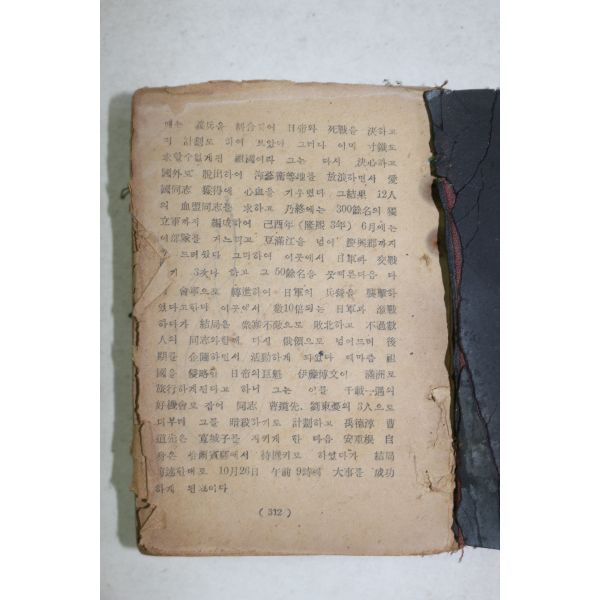 때는 義兵을 糾合하여 日帝와 死戰을 決하고
저 計劃도 하여 보았다 그러나 이미 寸鐵도
求할수없게된 祖國이라 그는 다시 決心하고
國外로 脫出하여 海蔘衛等地를 放浪하면서 愛
國同志 獲得에 心血을 기우렸다 그結果 12人
의 血盟同志를 求하고 乃終에는 300餘名의 獨
立軍까지 編成하여 己酉年 (隆熙 3年) 6月에는
이部隊를 거느리고 豆滿江을 넘어 慶興郡까지
드러왔다 그리하여 이곳에서 日軍과 交戰
기 3次나 하고 그 50餘名을 뭇찌른다음 다
會寧으로 轉進하여 日軍의 兵營을 襲擊하
였다고한다 이곳에서 數10倍되는 日軍과 激戰
하다가 結局은 衆寡不敵으로 敗北하고 不過數
人의 同志와함께 다시 俄領으로 넘어드며 後
期를 企圖하면서 活動하게 되었다 때마츰 祖
國을 侵略한 日帝의巨魁 伊藤博文이 滿洲로
旅行하게된다고 하니 그는 이를 千載一遇의
好機會로 잡어 同志 曹道先, 劉東夏의 3人으로
더부러 그를 暗殺하기로 計劃하고 禹德淳 曹
道先은 寬城子를 지키게 한 다음 安重根 自
身은 哈爾賓驛에서 待機키로 하였다가 結局
10月26日 午前 9時에 大事를 成功
하게 된 것이다
( 312 )